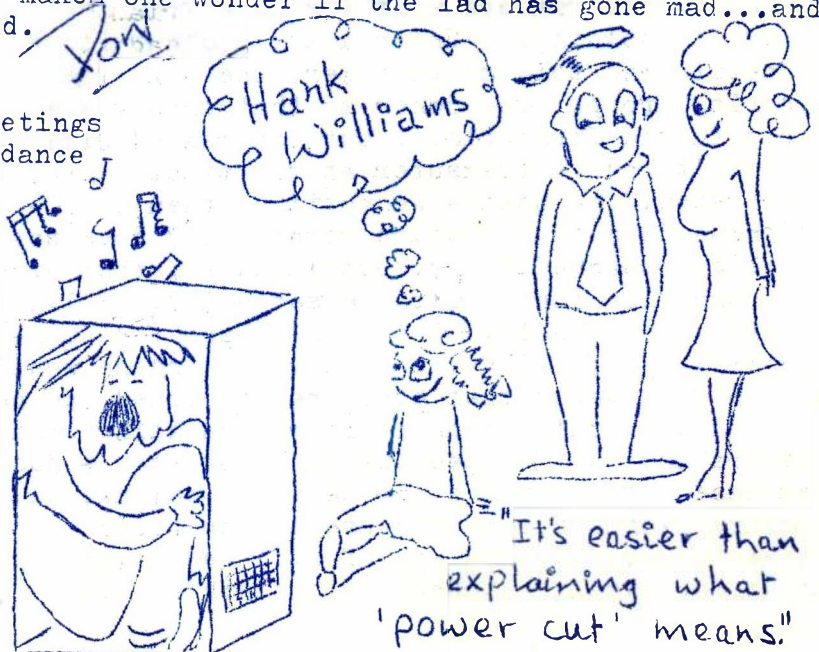 makes one wonder if the lad has gone mad...and
d.
Don
etings
dance
Hank
Williams
"It's easier than
explaining what
'power cut' means."